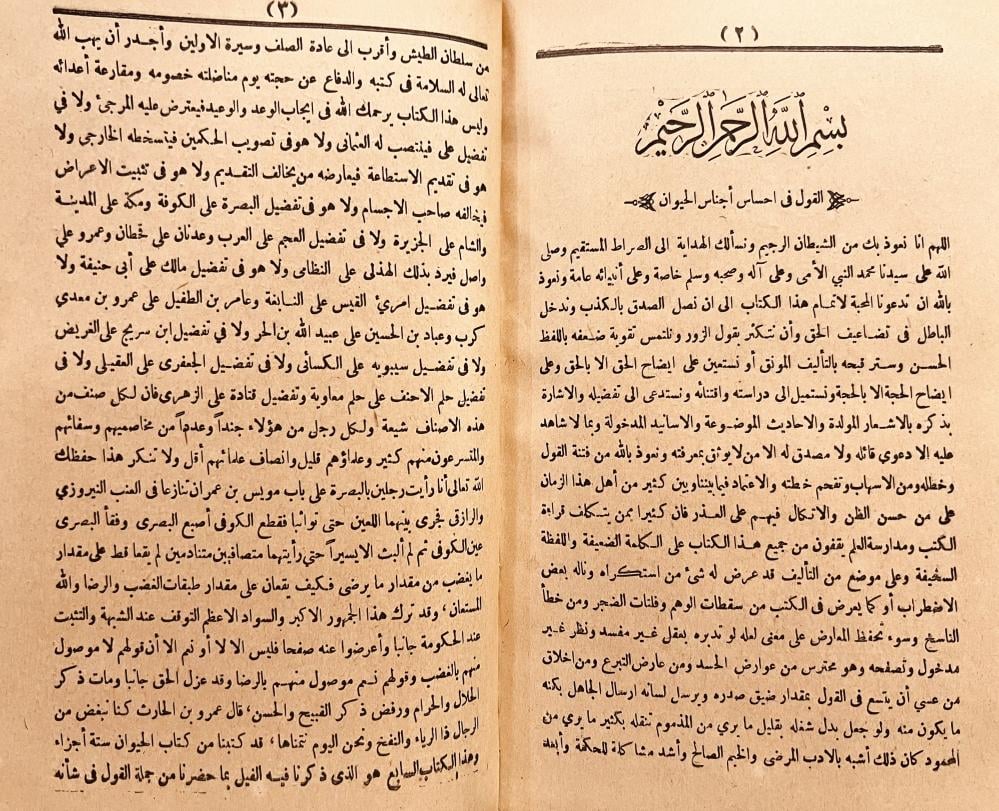 (٢)
بسم الله الرحمن الرحيم
القول فى احساس أجناس الحيوان
اللهم انا نعوذ بك من الشيطان الرجيم ونسألك الهداية الى الصراط المستقيم وصلى
الله على سيدنا محمد النبي الأمى وعلى آله وصحبه وسلم خاصة وعلى أنبيائه عامة ونعوذ
بالله ان تدعونا المحبة لاتمام هذا الكتاب الى ان نصل الصدق بالكذب وندخل
الباطل فى تضاعيف الحق وأن نتكثر بقول الزور ونلتمس تقوية ضعفه باللفظ
الحسن وستر قبحه بالتأليف المونق أو نستعين على ايضاح الحق الا بالحق وعلى
ايضاح الحجة الا بالحجة ونستميل الى دراسته واقتنائه ونستدعى الى تفضيله والاشارة
بذكره بالاشعار المولدة والاحاديث الموضوعة والاسانيد المدخولة وبما لا شاهد
عليه الا دعوي قائله ولا مصدق له الا من لا يوثق بمعرفته ونعوذ بالله من فتنة القول
وخطله ومن الاسهاب وتقحم خطته والاعتماد فيما بيننا وبين كثير من أهل هذا الزمان
على من حسن الظن والاتكال فيهم على العذر فان كثيرا بمن يتكلف قراءة
الكتب ومدارسة العلم يقفون من جميع هذا الكتاب على الكلمة الضعيفة واللفظة
السخيفة وعلى موضع من التأليف قد عرض له شئ من استكراه وناله بعض
الاضطراب أو كما يعرض فى الكتب من سقطات الوهم وفلتات الضجر ومن خطأ
الناسخ وسوء تحفظ المعارض على معنى لعله لو تدبره بعقل غير مفسد ونظر غير
مدخول وتصفحه وهو محترس من عوارض الحسد ومن عارض التبرع ومن اخلاق
من عسي أن يتسع فى القول بمقدار ضيق صدره ويرسل لسانه ارسال الجاهل بكنه
ما يكون منه ولو جعل بدل شغله بقليل ما يري من المذموم تنقله بكثير ما يري من
المحمود كان ذلك أشبه بالادب المرضى والخيم الصالح وأشد مشاكلة للحكمة وأبعد
(٣)
من سلطان الطيش وأقرب الى عادة الصلف وسيرة الاولين وأجدر أن يهب الله
تعالى له السلامة فى كتبه والدفاع عن حجته يوم مناضلته خصومه ومقارعة أعدائه
وليس هذا الكتاب يرحمك الله فى ايجاب الوعد والوعيد فيعترض عليه المرجئ ولا في
تفضيل على فينتصب له العثمانى ولا هو فى تصويب الحكمين فيتسخطه الخارجي ولا
هو فى تقديم الاستطاعة فيعارضه من يخالف التقديم ولا هو فى تثبيت الاعراض
فيخالفه صاحب الاجسام ولا هو فى تفضيل البصرة على الكوفة ومكة على المدينة
والشام على الجزيرة ولا فى تفضيل العجم على العرب وعدنان على قحطان وعمرو علي
واصل فيرد بذلك الهذلى على النظامى ولا هو فى تفضيل مالك على أبى حنيفة ولا
هو فى تفضيل امرئ القيس على النابغة وعامر بن الطفيل على عمرو بن معدي
كرب وعباد بن الحسين على عبيد الله بن الحر ولا في تفضيل ابن سريج على الغريض
ولا فى تفضيل سيبويه على الكسائى ولا فى تفضيل الجعفرى على العقيلى ولا فى
تفضيل حلم الاحنف على حلم معاوية وتفضيل قتادة على الزهرى فان لكل صنف من
هذه الاصناف شيعة ولكل رجل من هؤلاء جنداً وعدداً من مخاصميهم وسفائهم
والمتسرعون منهم كثير وعلماؤهم قليل وانصاف علمائهم أقل ولا تنكر هذا حفظك
الله تعالى أنا رأيت رجلين بالبصرة على باب مويس بن عمران تنازعا فى العنب النيروزي
والرازقى فجرى بينهما اللعين حتى تواثبا فقطع الكوفى أصبع البصرى وفقأ البصرى
عين الكوفى ثم لم ألبث الا يسيراً حتي رأيتهما متصافيين متنادمين لم يقعا قط على مقدار
ما يغضب من مقدار ما يرضى فكيف يقعان على مقدار طبقات الغضب والرضا والله
المستعان، وقد ترك هذا الجمهور الاكبر والسواد الاعظم التوقف عند الشبهة والتثبت
عند الحكومة جانبا وأعرضوا عنه صفحا فليس الا لا أو نعم الا أن قولهم لا موصول
منهم بالغضب وقولهم نعم موصول منهم بالرضا وقد عزل الحق جانبا ومات ذكر
الحلال والحرام ورفض ذكر القبيح والحسن، قال عمرو بن الحارث كنا نبغض من
الرجال ذا الرياء والنفخ ونحن اليوم نتمناها، قد كتبنا من كتاب الحيوان ستة أجزاء
وهذا الكتاب السابع هو الذى ذكرنا فيه الفيل بما حضرنا من جملة القول فى شأنه